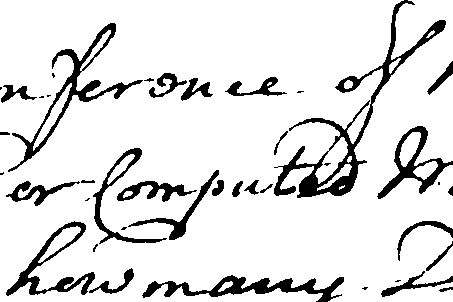 nference of
er Computed
how many